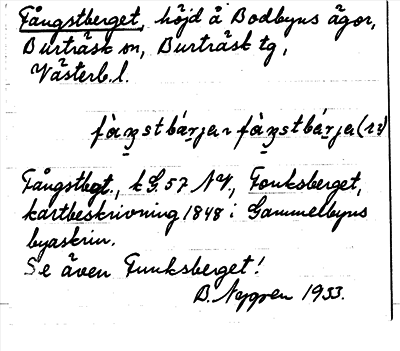 Fångstberget, höjd å Bodbyns ägor,
Burträsk sn, Burträsk tg,
Västerb. l.
fàŋstbárjə ~ fàŋstbárjə (??)
Fångstbgt., k G. 57 NV., Fonksberget,
kartbeskrivning 1848 i Gammelbyns
byaskrin.
Se även Funksberget!
B. Nygren 1933.